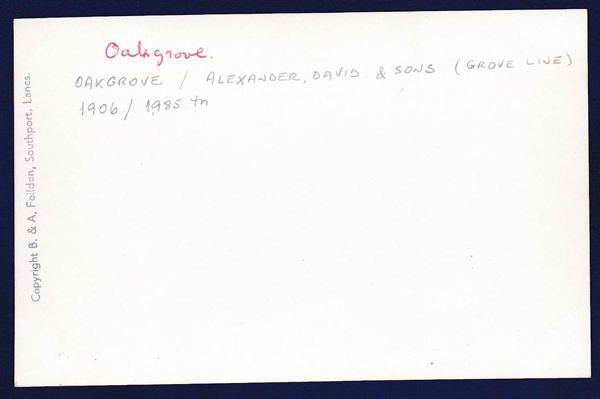 Oakgrove.
OAKGROVE / ALEXANDER, DAVID & SONS (GROVE LINE)
1906 / 1,985 tn
Copyright B. & A. Feilden, Southport, Lancs.